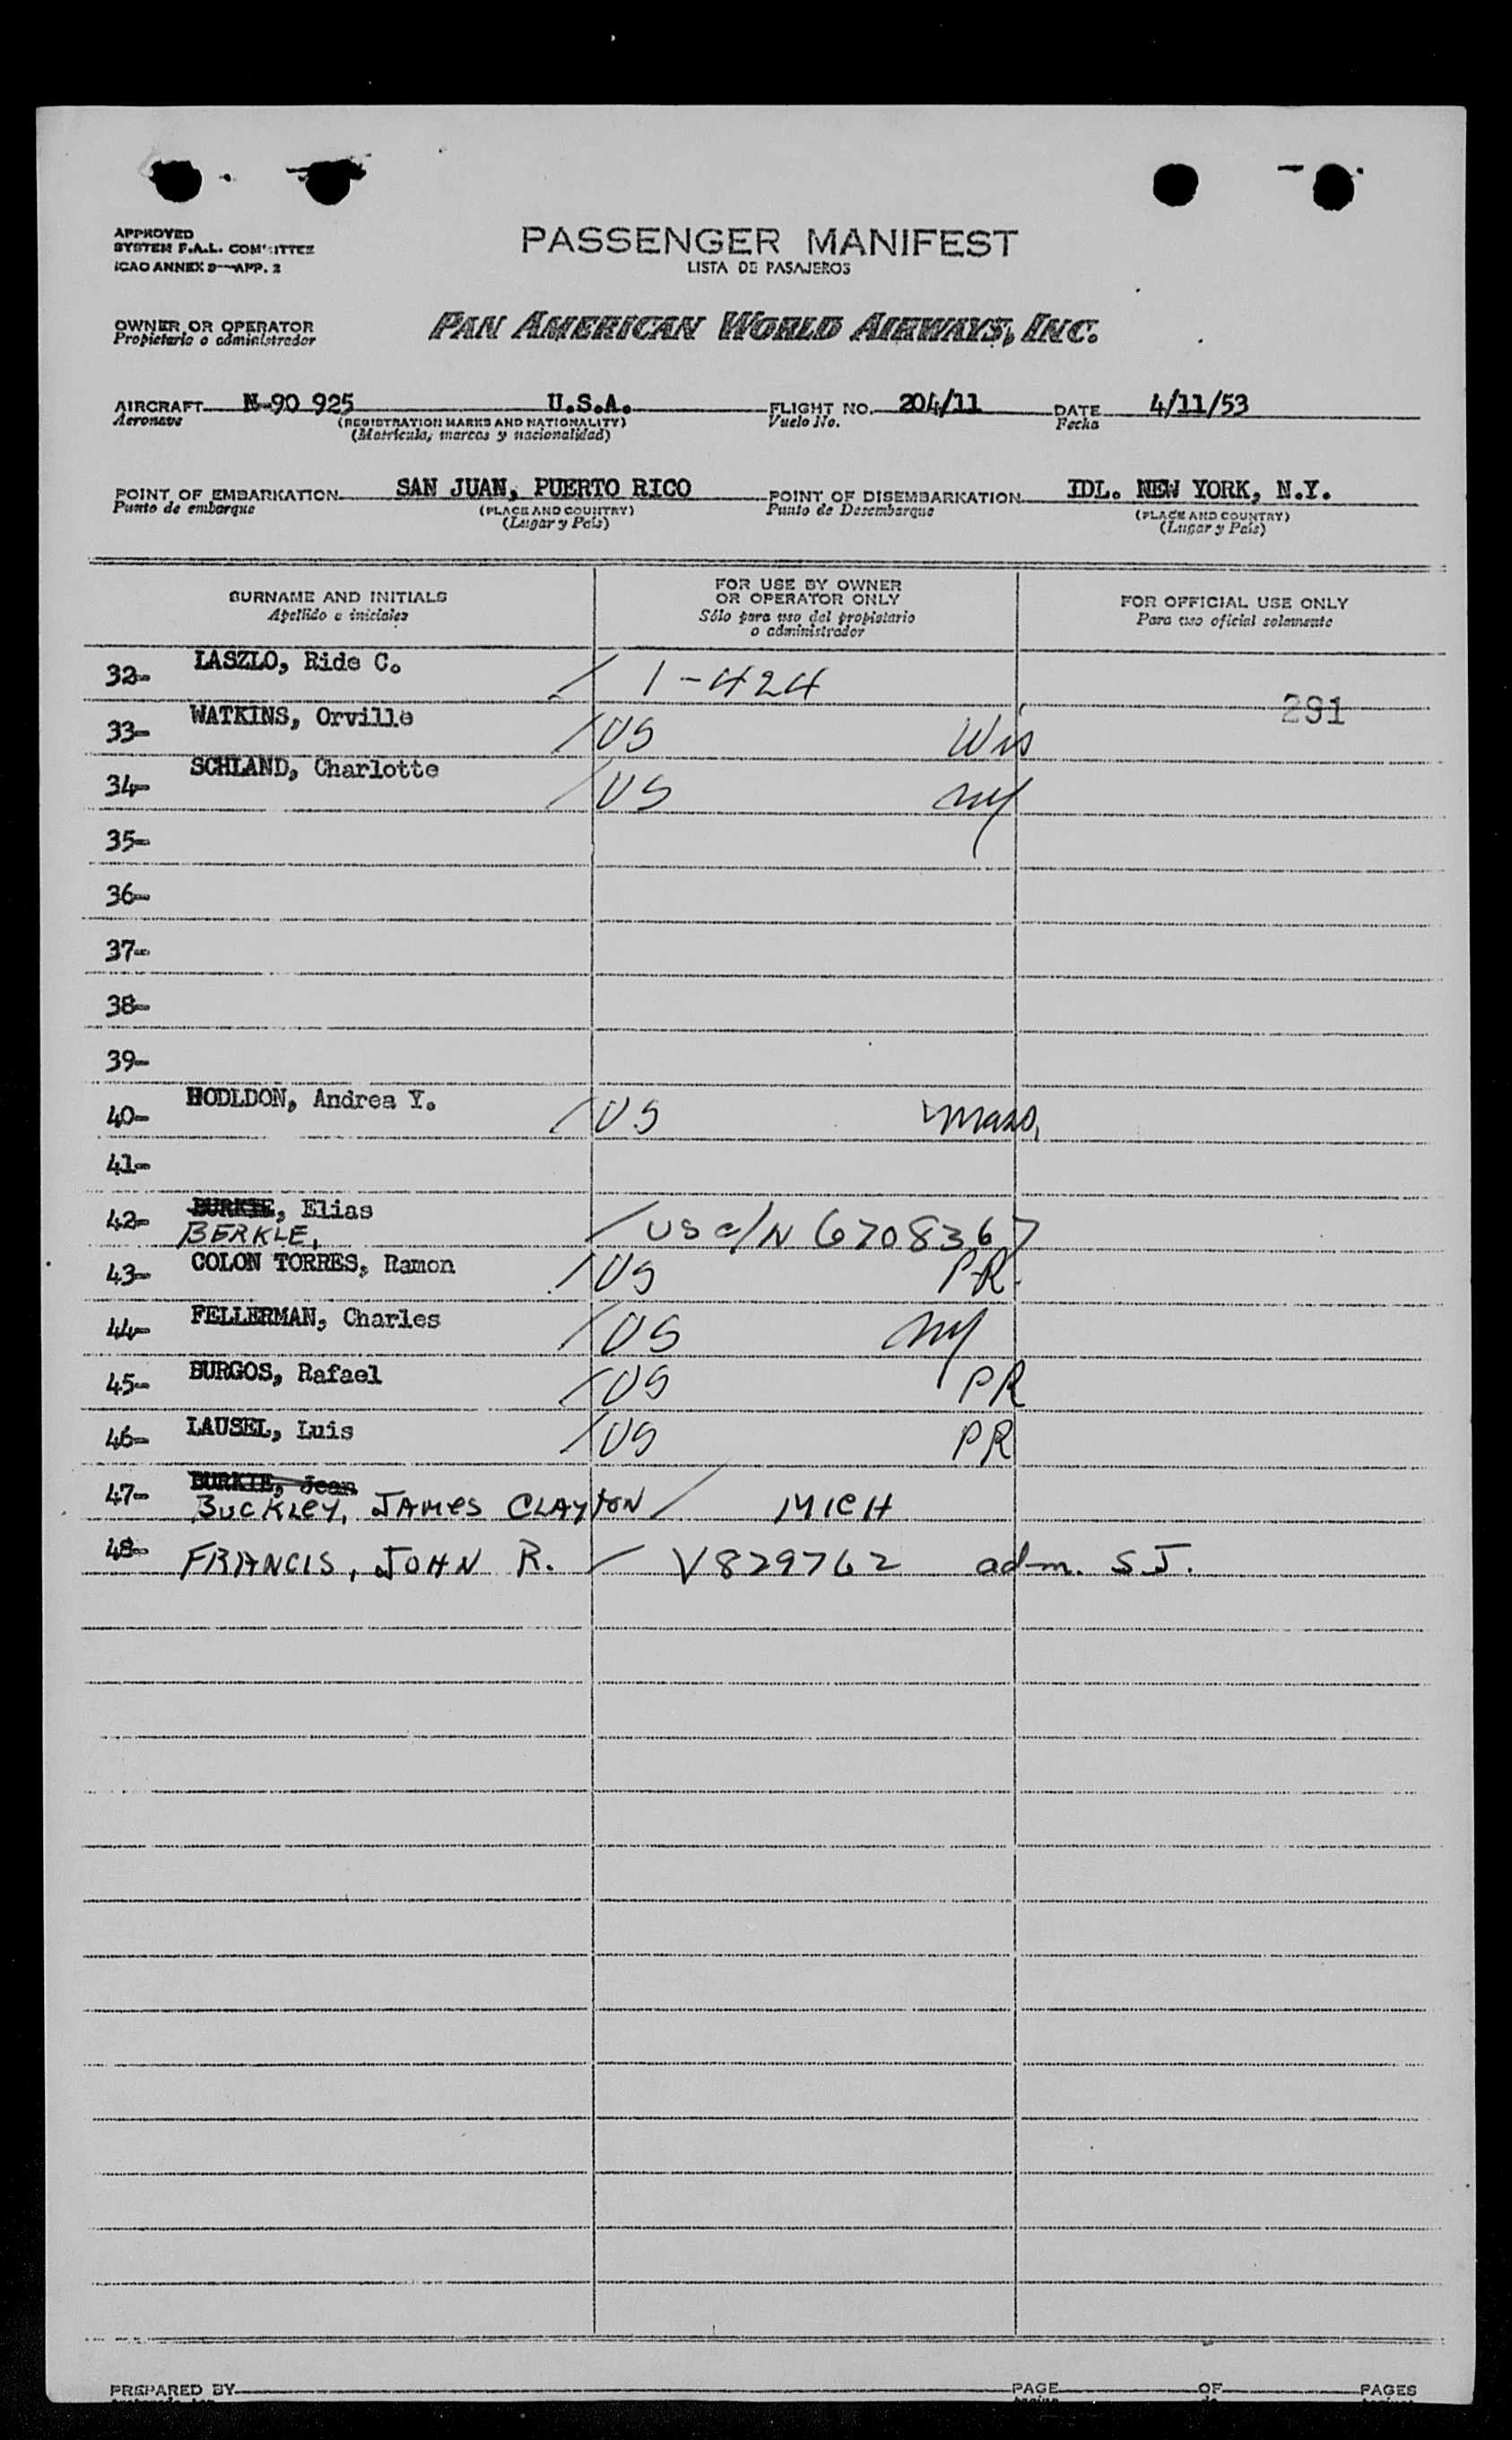 APPROVED
SYSTEM F.A.L. COMMITTEE
ICAO ANNEX 9—APP. 2
PASSENGER MANIFEST
LISTA DE PASAJEROS
OWNER OR OPERATOR
Propietario o administrador
PAN AMERICAN WORLD AIRWAYS, INC.
AIRCRAFT N-90 925 U.S.A. FLIGHT NO. 204/11 DATE 4/11/53
Aeronave (REGISTRATION MARKS AND NATIONALITY) Vuelo No. Fecha
(Matrícula, marcas y nacionalidad)
POINT OF EMBARKATION SAN JUAN, PUERTO RICO POINT OF DISEMBARKATION IDL. NEW YORK, N.Y.
Punto de embarque (PLACE AND COUNTRY) Punto de Desembarque (PLACE AND COUNTRY)
(Lugar y País) (Lugar y País)
SURNAME AND INITIALS
Apellido e iniciales
FOR USE BY OWNER
OR OPERATOR ONLY
Sólo para uso del propietario
o administrador
FOR OFFICIAL USE ONLY
Para uso oficial solamente
32- LASZLO, Ride C. / 1-424
291
33- WATKINS, Orville / US Wis
34- SCHLAND, Charlotte / US NY
35-
36-
37-
38-
39-
40- HODLDON, Andrea Y. / US Mass.
41-
42- BURKIE, Elias
BERKLE, / US c/N 6708367
43- COLON TORRES, Ramon / US PR.
44- FELLERMAN, Charles / US NY
45- BURGOS, Rafael / US PR
46- LAUSEL, Luis / US PR
47- BURKIE, Jean
BUCKLEY, JAMES CLAYTON / MICH
48- FRANCIS, JOHN R. / V829762 adm. S J.
PREPARED BY PAGE OF PAGES